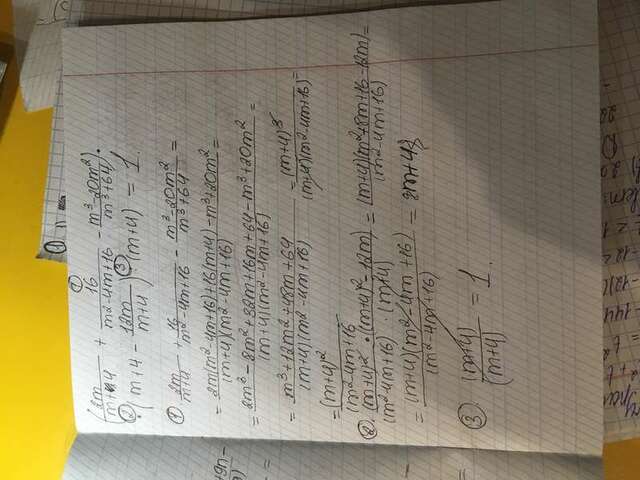 ①
(2m/(m+4) + 16/(m²-4m+16) - (m³-20m²)/(m³+64)) ·
② · (m+4 - 12m/(m+4)) ③ : (m+4) = 1.
① 2m/(m+4) + 16/(m²-4m+16) - (m³-20m²)/(m³+64) =
= (2m(m²-4m+16)+16(m+4)-m³+20m²)/((m+4)(m²-4m+16)) =
= (2m³-8m²+32m+16m+64-m³+20m²)/((m+4)(m²-4m+16)) =
= (m³+12m²+48m+64)/((m+4)(m²-4m+16)) = (m+4)³/((m+4)(m²-4m+16)) =
= (m+4)²/(m²-4m+16
② ((m+4)² · ((m+4)²-12m))/((m²-4m+16) · (m+4)) = ((m+4)(m²+8m+16-12m))/((m²-4m+16)) =
= ((m+4)(m²-4m+16))/((m²-4m+16)) = m+4;
③ (m+4)/(m+4) = 1.